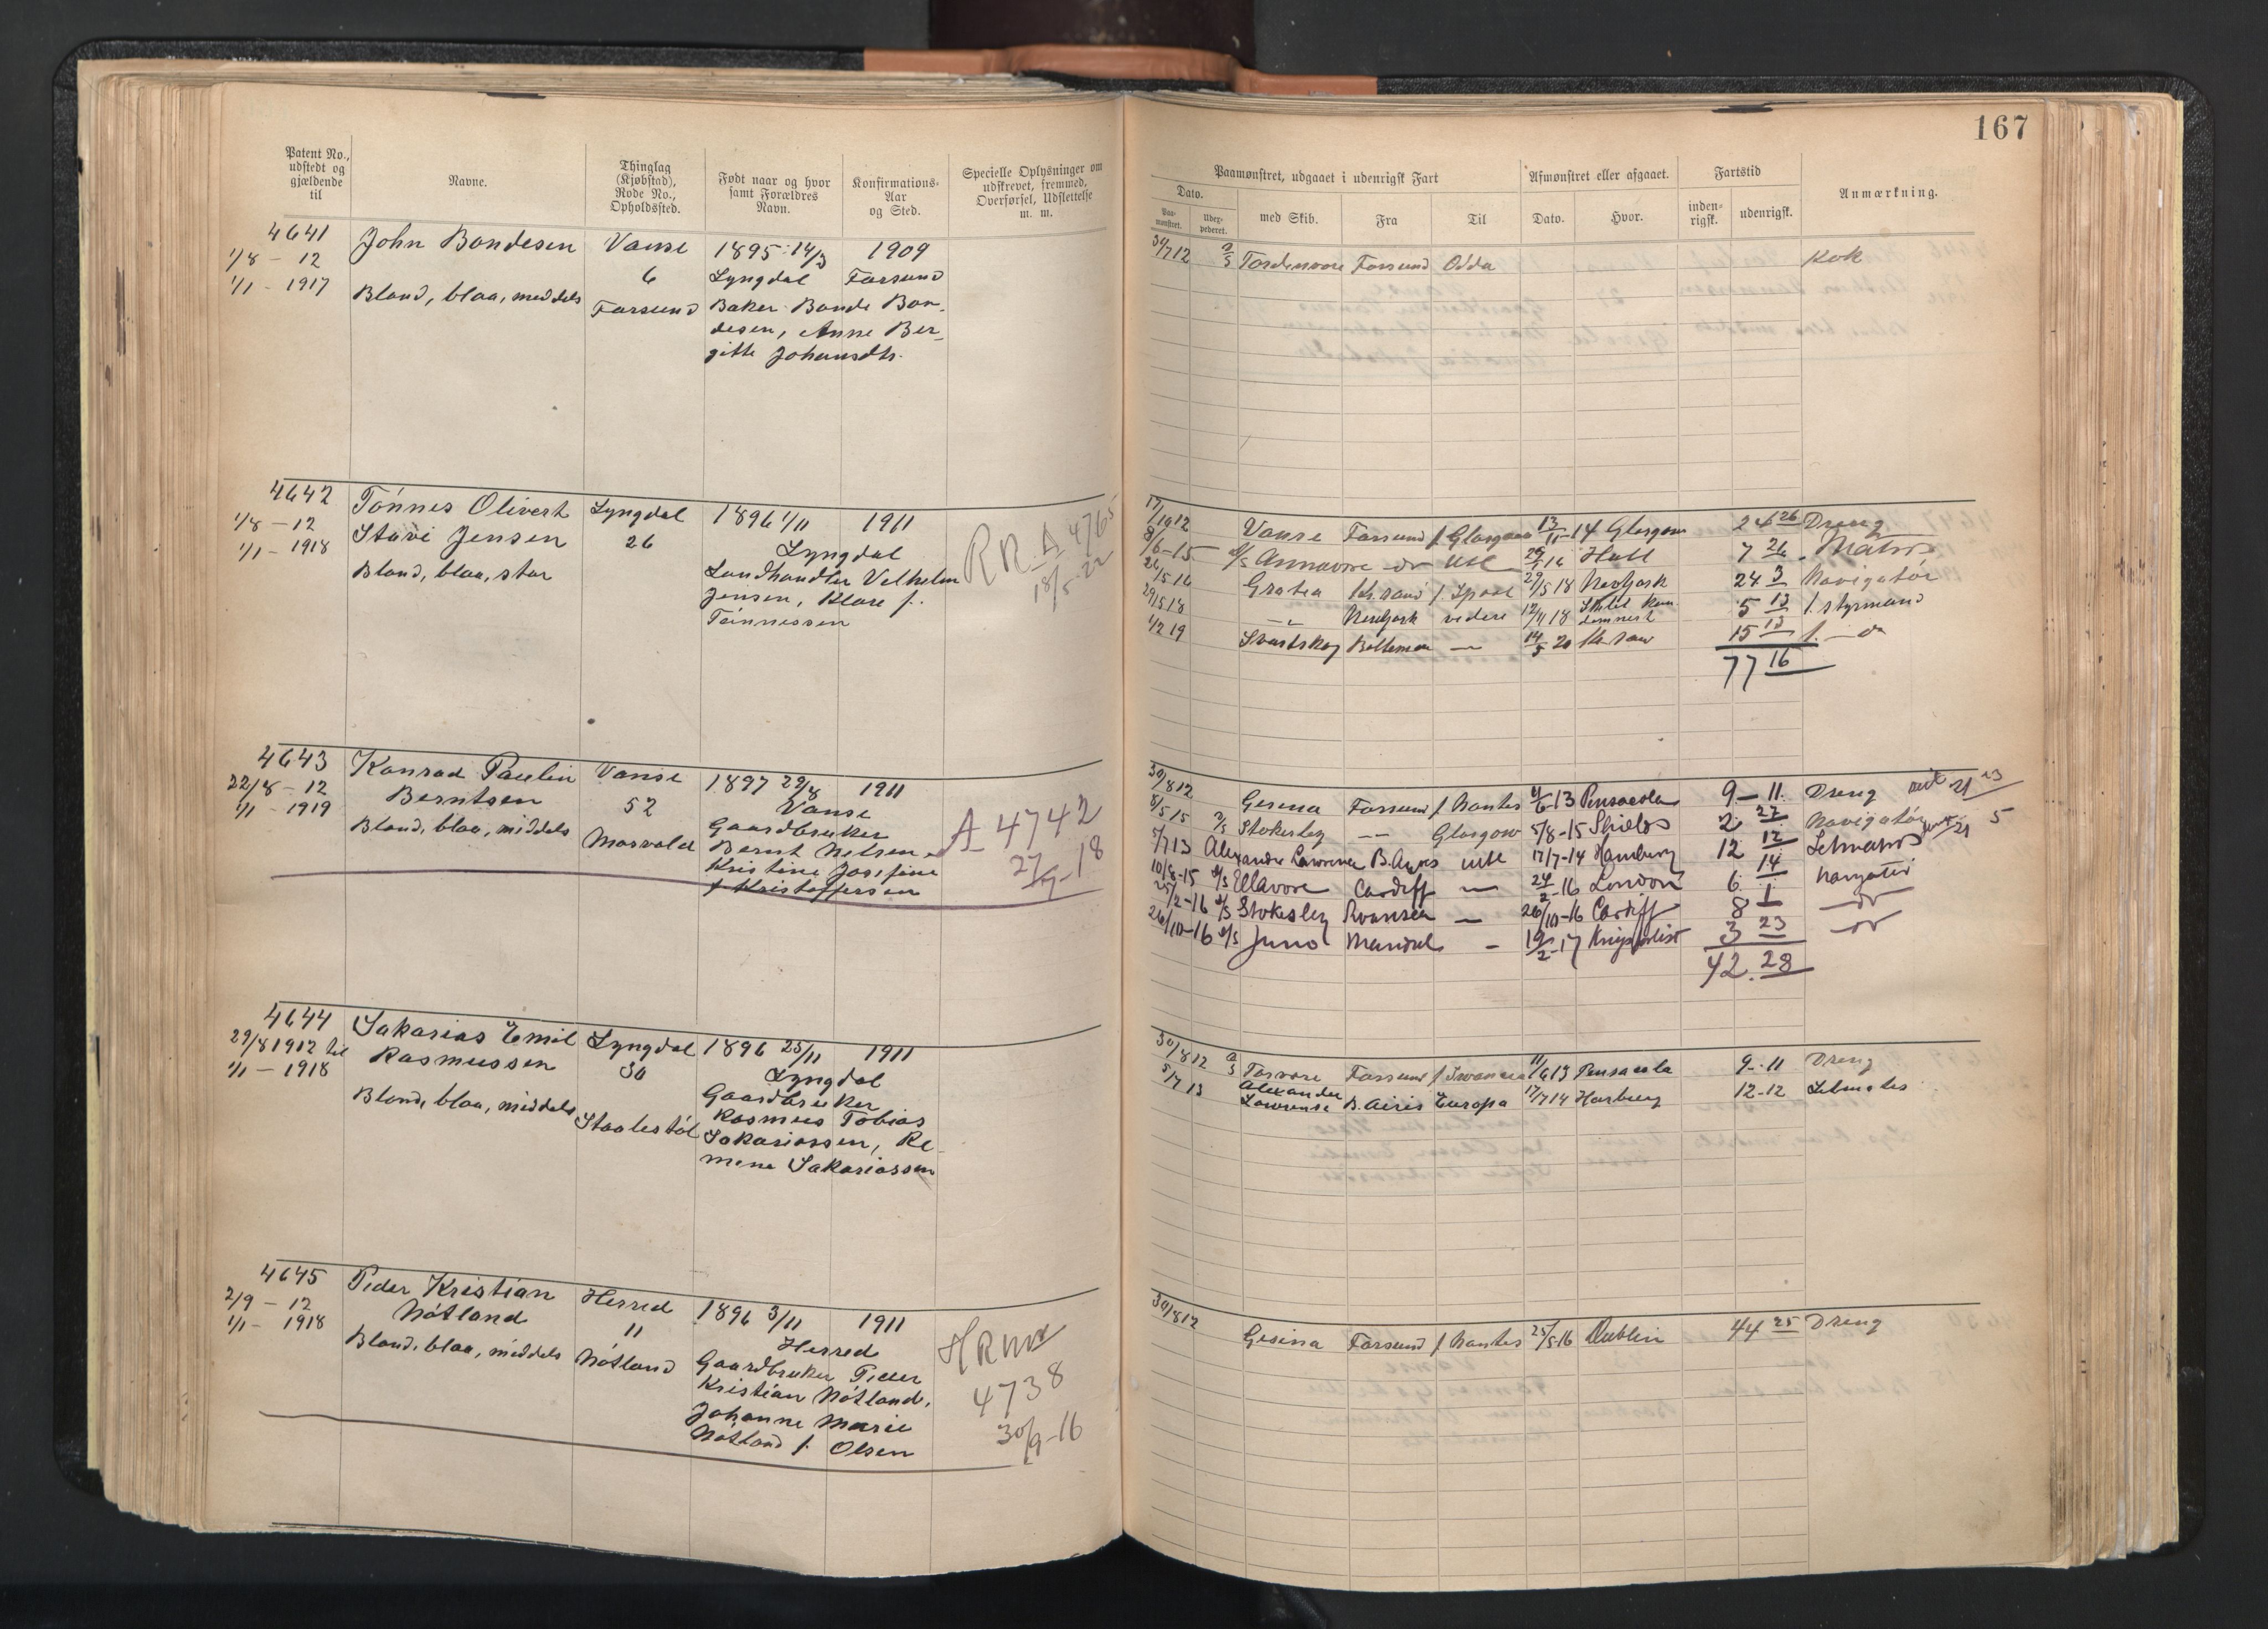 167
Patent No., udstedt og gjældende til
Navne.
Thinglag (Kjøbstad), Rode No., Opholdssted.
Født naar og hvor samt Forældres Navn.
Konfirmations-Aar og Sted.
Specielle Oplysninger om udskrevet, fremmed, Overførsel, Udslettelse m. m.
Paamønstret, udgaaet i udenrigsk Fart
Afmønstret eller afgaaet.
Fartstid
Anmærkning.
Dato.
Paa-mønstret.
Udex-pederet.
med Skib.
Fra
Til
Dato.
Hvor.
inden-rigsk.
udenrigsk.
4641 John Bondesen Vanse 1895 14/3 1909
1/8 - 12 6 Lyngdal Farsund
1/1 - 1917 Blond, blaa, middels Farsund Baker Bonde Bon-
desen, Anne Ber-
gitte Johansdtr.
30/7 12 Tordenvore Farsund Odda Kok
4642 Tönnes Olivert Lyngdal 1896 1/11 1911
1/8 - 12 Støvi Jensen 26 Lyngdal
1/1 - 1918 Blond, blaa, stor Landhandler Velhelm
Jensen, Klare f.
Tönnessen
RR A 4765
18/5-22
17/10 12 Vanse Farsund f Glasgow 13/11-14 Glasgow 24 26 Dreng
8/6-15 D/S Annavore do Utl 26/5 16 Hull 7 26 Matros
26/5 16 Gratia Kr.sand f. Lpool 29/5 18 NewYork 24 3 Navigatör
29/5 18 NewYork videre 12/11 18 5 13 1. styrmand
1/2 19 Svartskog Baltimore — 14/5 20 Kr.sand 15 13 1. — do
77 16
4643 Konrad Paulin Vanse 1897 29/8 1911
22/8 - 12 Berntsen 52 Vanse
1/1 - 1919 Blond, blaa, middels Morvold Gaardbruker
Bernt Nelsen
Kristine Josefine
f Kristoffersen
A 4742
27/9-18
30/8 12 Gesina Farsund f Nantes 11/6-13 Pensacola 9 - 11 Dreng
8/5 15 Stokesley — Glasgow 5/8-15 Shields 2. 27 Navigatör
5/7 13 Alexander Lawrence B.Ayres utl 17/7-14 Hamburg 12 12 Letmatros
10/8-15 D/S Ellavore Cardiff — 24/2-16 London 6. 14 Navigatör
25/2-16 D/S Stokesley Svansea — 26/10-16 Cardiff 8 1 — do
26/10-16 D/S Juno Mandal - 19/2-17 Krigsforlist 3 23 — do
42. 28
4644 Sakarias Emil Lyngdal 1896 25/11 1911
29/8 1912 til Rasmussen 30 Lyngdal
1/1 - 1918 Gaardbruker
Blond, blaa, middels Staalestöl Rasmus Tobias
Sakariassen, Re-
mine Sakariassen
30/8 12 Torvore Farsund f Swansea 11/6 13 Pensacola 9 - 11 Dreng
5/7 13 Alexander Lawrense B. Airis Europa 17/7 14 Harburg 12-12 Letmatros
4645 Peder Kristian Herred 1896 3/11 1911
2/9 - 12 Nötland 11 Herred
1/1 - 1918 Blond, blaa, middels Nötland Gaardbruker Peder
Kristian Nötland,
Johanne Marie
Nötland f. Olsen
4738
30/9-16
30/8 12 Gesina Farsund f Nantes 25/5-16 Dublin 44 25 Dreng